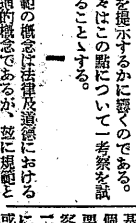 を提示するかに懸くのである。
々はこの點について一考察を試
ることゝする。
範の概念は法律及道德における
的概念であるが、茲に規範と